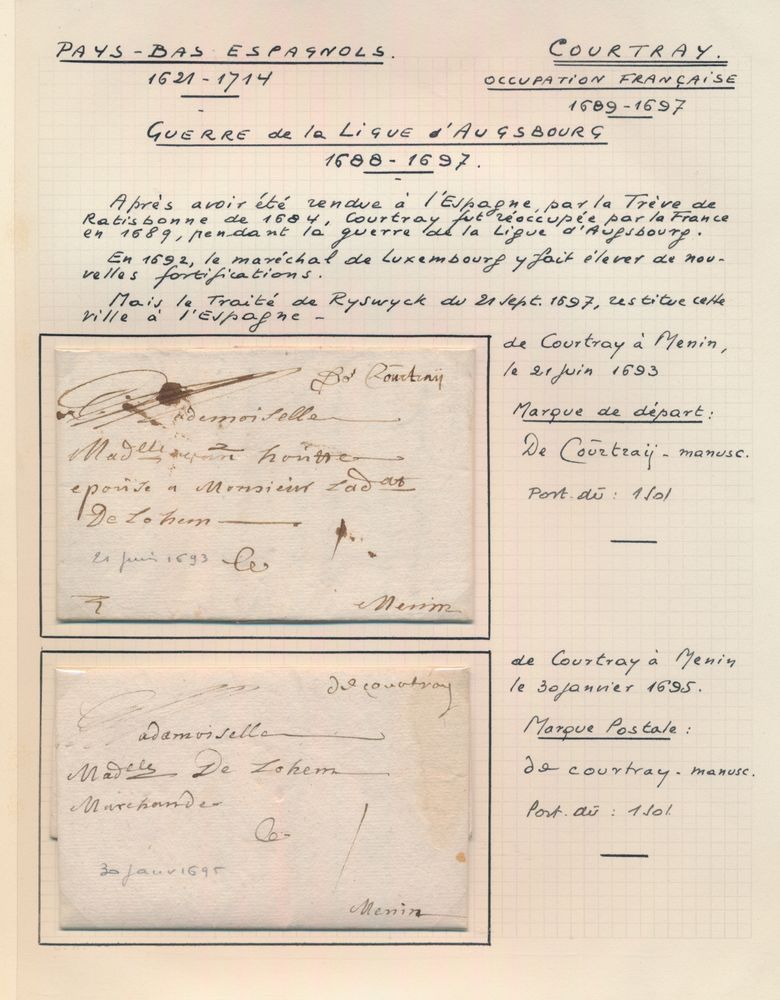 PAYS-BAS ESPAGNOLS.
1621-1714
COURTRAY.
OCCUPATION FRANÇAISE
1689-1697
GUERRE de la LIGUE d'AUGSBOURG
1688-1697.
Après avoir été rendue à l'Espagne, par la Trève de
Ratisbonne de 1684, Courtray fut réoccupée par la France
en 1689, pendant la guerre de la Ligue d'Augsbourg.
En 1692, le maréchal de Luxembourg y fait élever de nou-
velles fortifications.
Mais le Traité de Ryswyck du 21 sept. 1697, restitue cette
ville à l'Espagne -
Courtraij
ademoiselle
Mad.elle van houtte
epouse a Monsieur
De Lohem
21 juin 1693
Menin
de Courtray à Menin,
le 21 juin 1693
Marque de départ:
De Courtraij - manusc.
Port-dû: 1 sol
de courtray
adamoiselle
Mad.elle De Lohem
Marchande
30 janv 1695
Menin
de Courtray à Menin
le 30 janvier 1695.
Marque Postale:
de courtray - manusc.
Port-dû: 1 sol